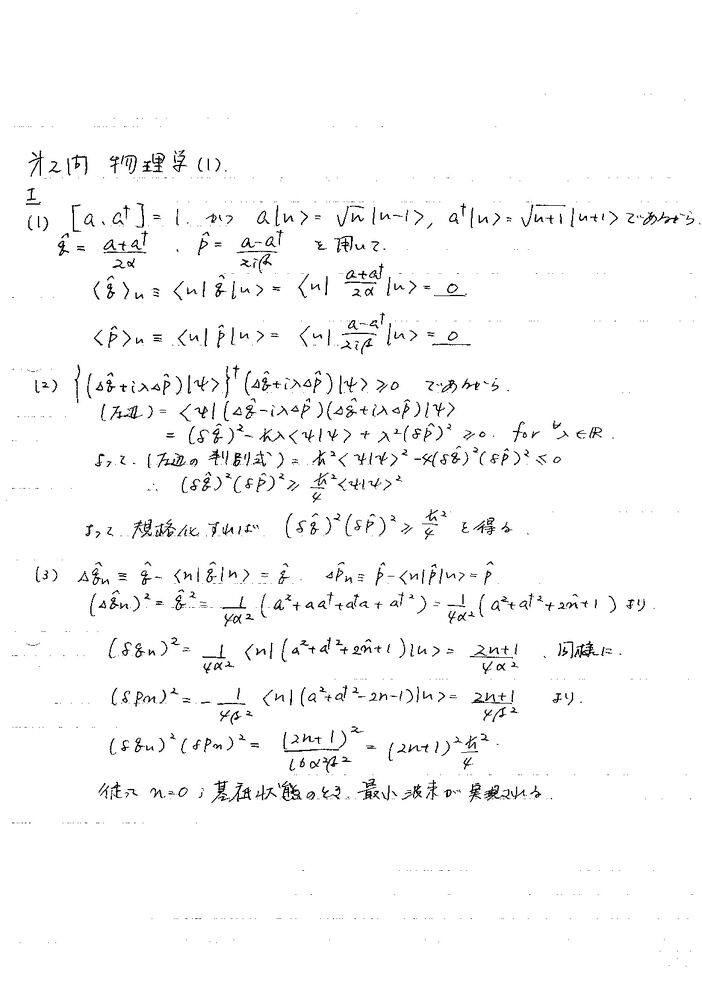 第2問 物理学(1).
I
(1) [a, a†] = 1. かつ a|n> = √n |n-1>, a†|n> = √(n+1) |n+1> であるから.
q̂ = (a+a†)/2α , p̂ = (a-a†)/2iβ を用いて.
<q̂>n ≡ <n|q̂|n> = <n| (a+a†)/2α |n> = 0
<p̂>n ≡ <n|p̂|n> = <n| (a-a†)/2iβ |n> = 0
(2) {(Δq̂+iλΔp̂)|ψ>}† (Δq̂+iλΔp̂)|ψ> ≥ 0 であるから.
(左辺) = <ψ|(Δq̂-iλΔp̂)(Δq̂+iλΔp̂)|ψ>
= (δq̂)² - ħλ<ψ|ψ> + λ²(δp̂)² ≥ 0. for ∀λ∈ℝ.
よって. (左辺の判別式) = ħ²<ψ|ψ>² - 4(δq̂)²(δp̂)² ≤ 0
∴ (δq̂)²(δp̂)² ≥ ħ²/4 <ψ|ψ>²
よって 規格化すれば (δq̂)²(δp̂)² ≥ ħ²/4 を得る.
(3) Δq̂n ≡ q̂ - <n|q̂|n> = q̂ Δp̂n ≡ p̂ - <n|p̂|n> = p̂
(Δq̂n)² = q̂² = 1/4α² (a²+aa†+a†a+a†²) = 1/4α² (a²+a†²+2n̂+1) より.
(δqn)² = 1/4α² <n|(a²+a†²+2n̂+1)|n> = (2n+1)/4α² . 同様に.
(δpn)² = - 1/4β² <n|(a²+a†²-2n-1)|n> = (2n+1)/4β² より.
(δqn)²(δpn)² = (2n+1)²/16α²β² = (2n+1)² ħ²/4.
従って n=0 ; 基底状態のとき 最小波束が実現される.